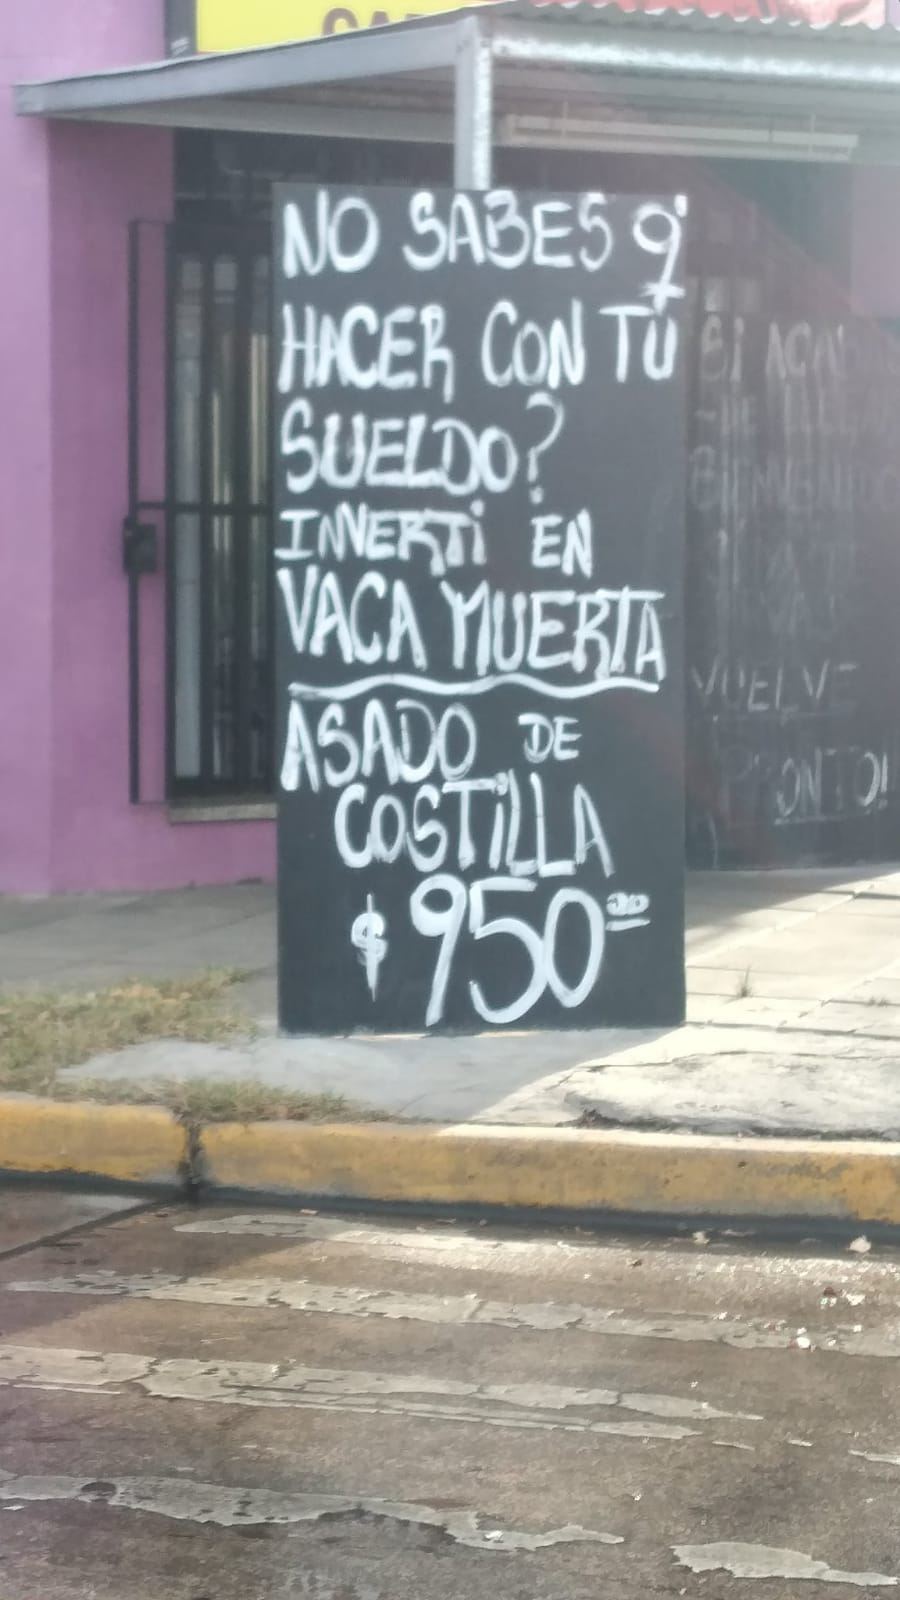 NO SABES q'
HACER CON TU
SUELDO?
INVERTI EN
VACA MUERTA
ASADO DE
COSTILLA
$ 950
VUELVE
PRONTO!